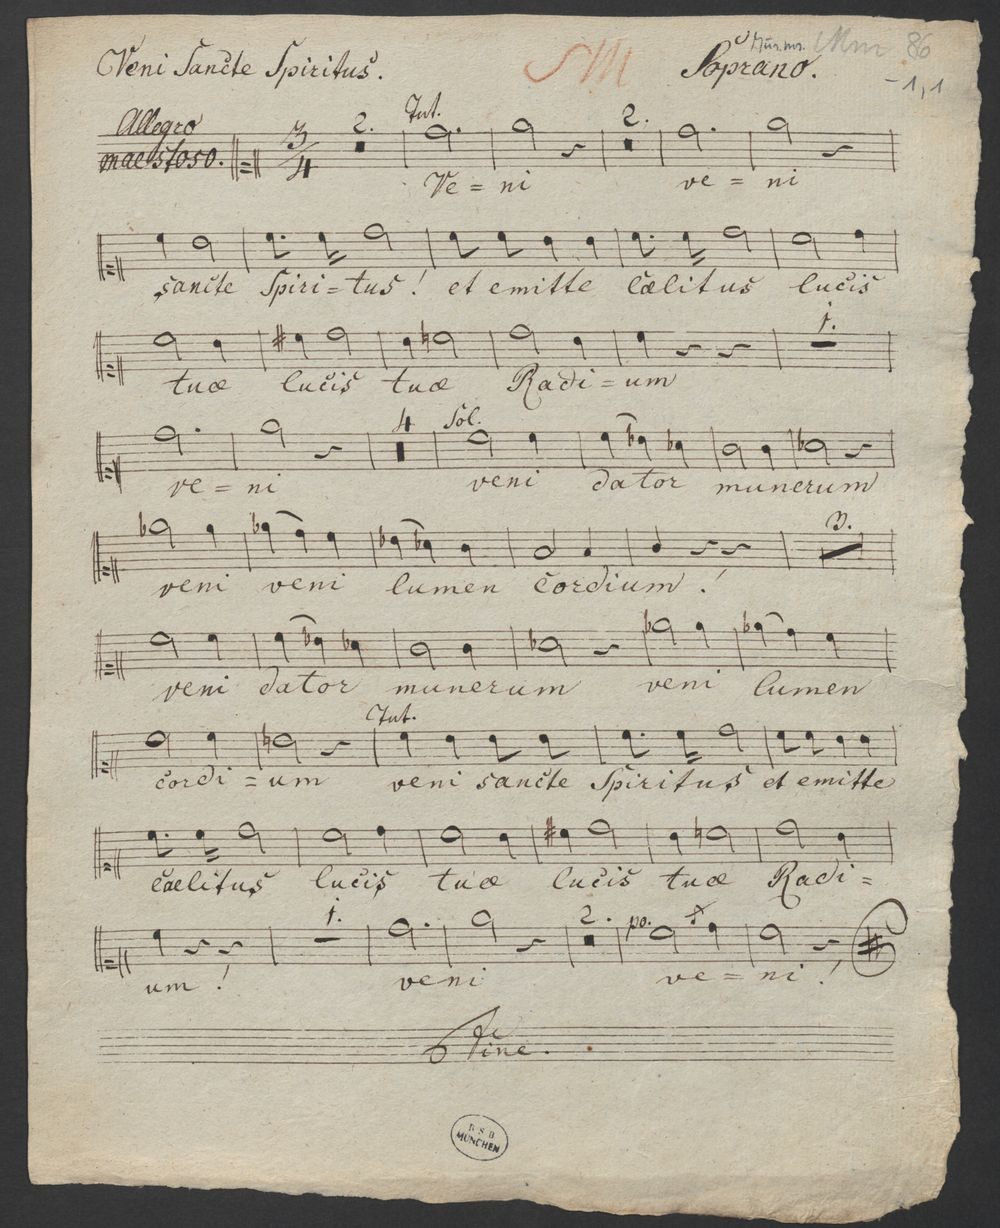 Veni Sancte Spiritus. Soprano. Mus.ms. Mm 86
-1,1
Allegro
maestoso. 3/4 2. Tut. 2.
Ve = ni ve = ni
sancte Spiri = tus! et emitte cælitus lucis
1.
tuæ lucis tuæ Radi = um
4 Sol.
ve = ni veni dator munerum
3.
veni veni lumen cordium!
veni dator munerum veni lumen
Tut.
cordi = um veni sancte Spiritus et emitte
cælitus lucis tuæ lucis tuæ Radi =
1. 2. po.
um! veni ve = ni!
Fine.
BSB
MÜNCHEN